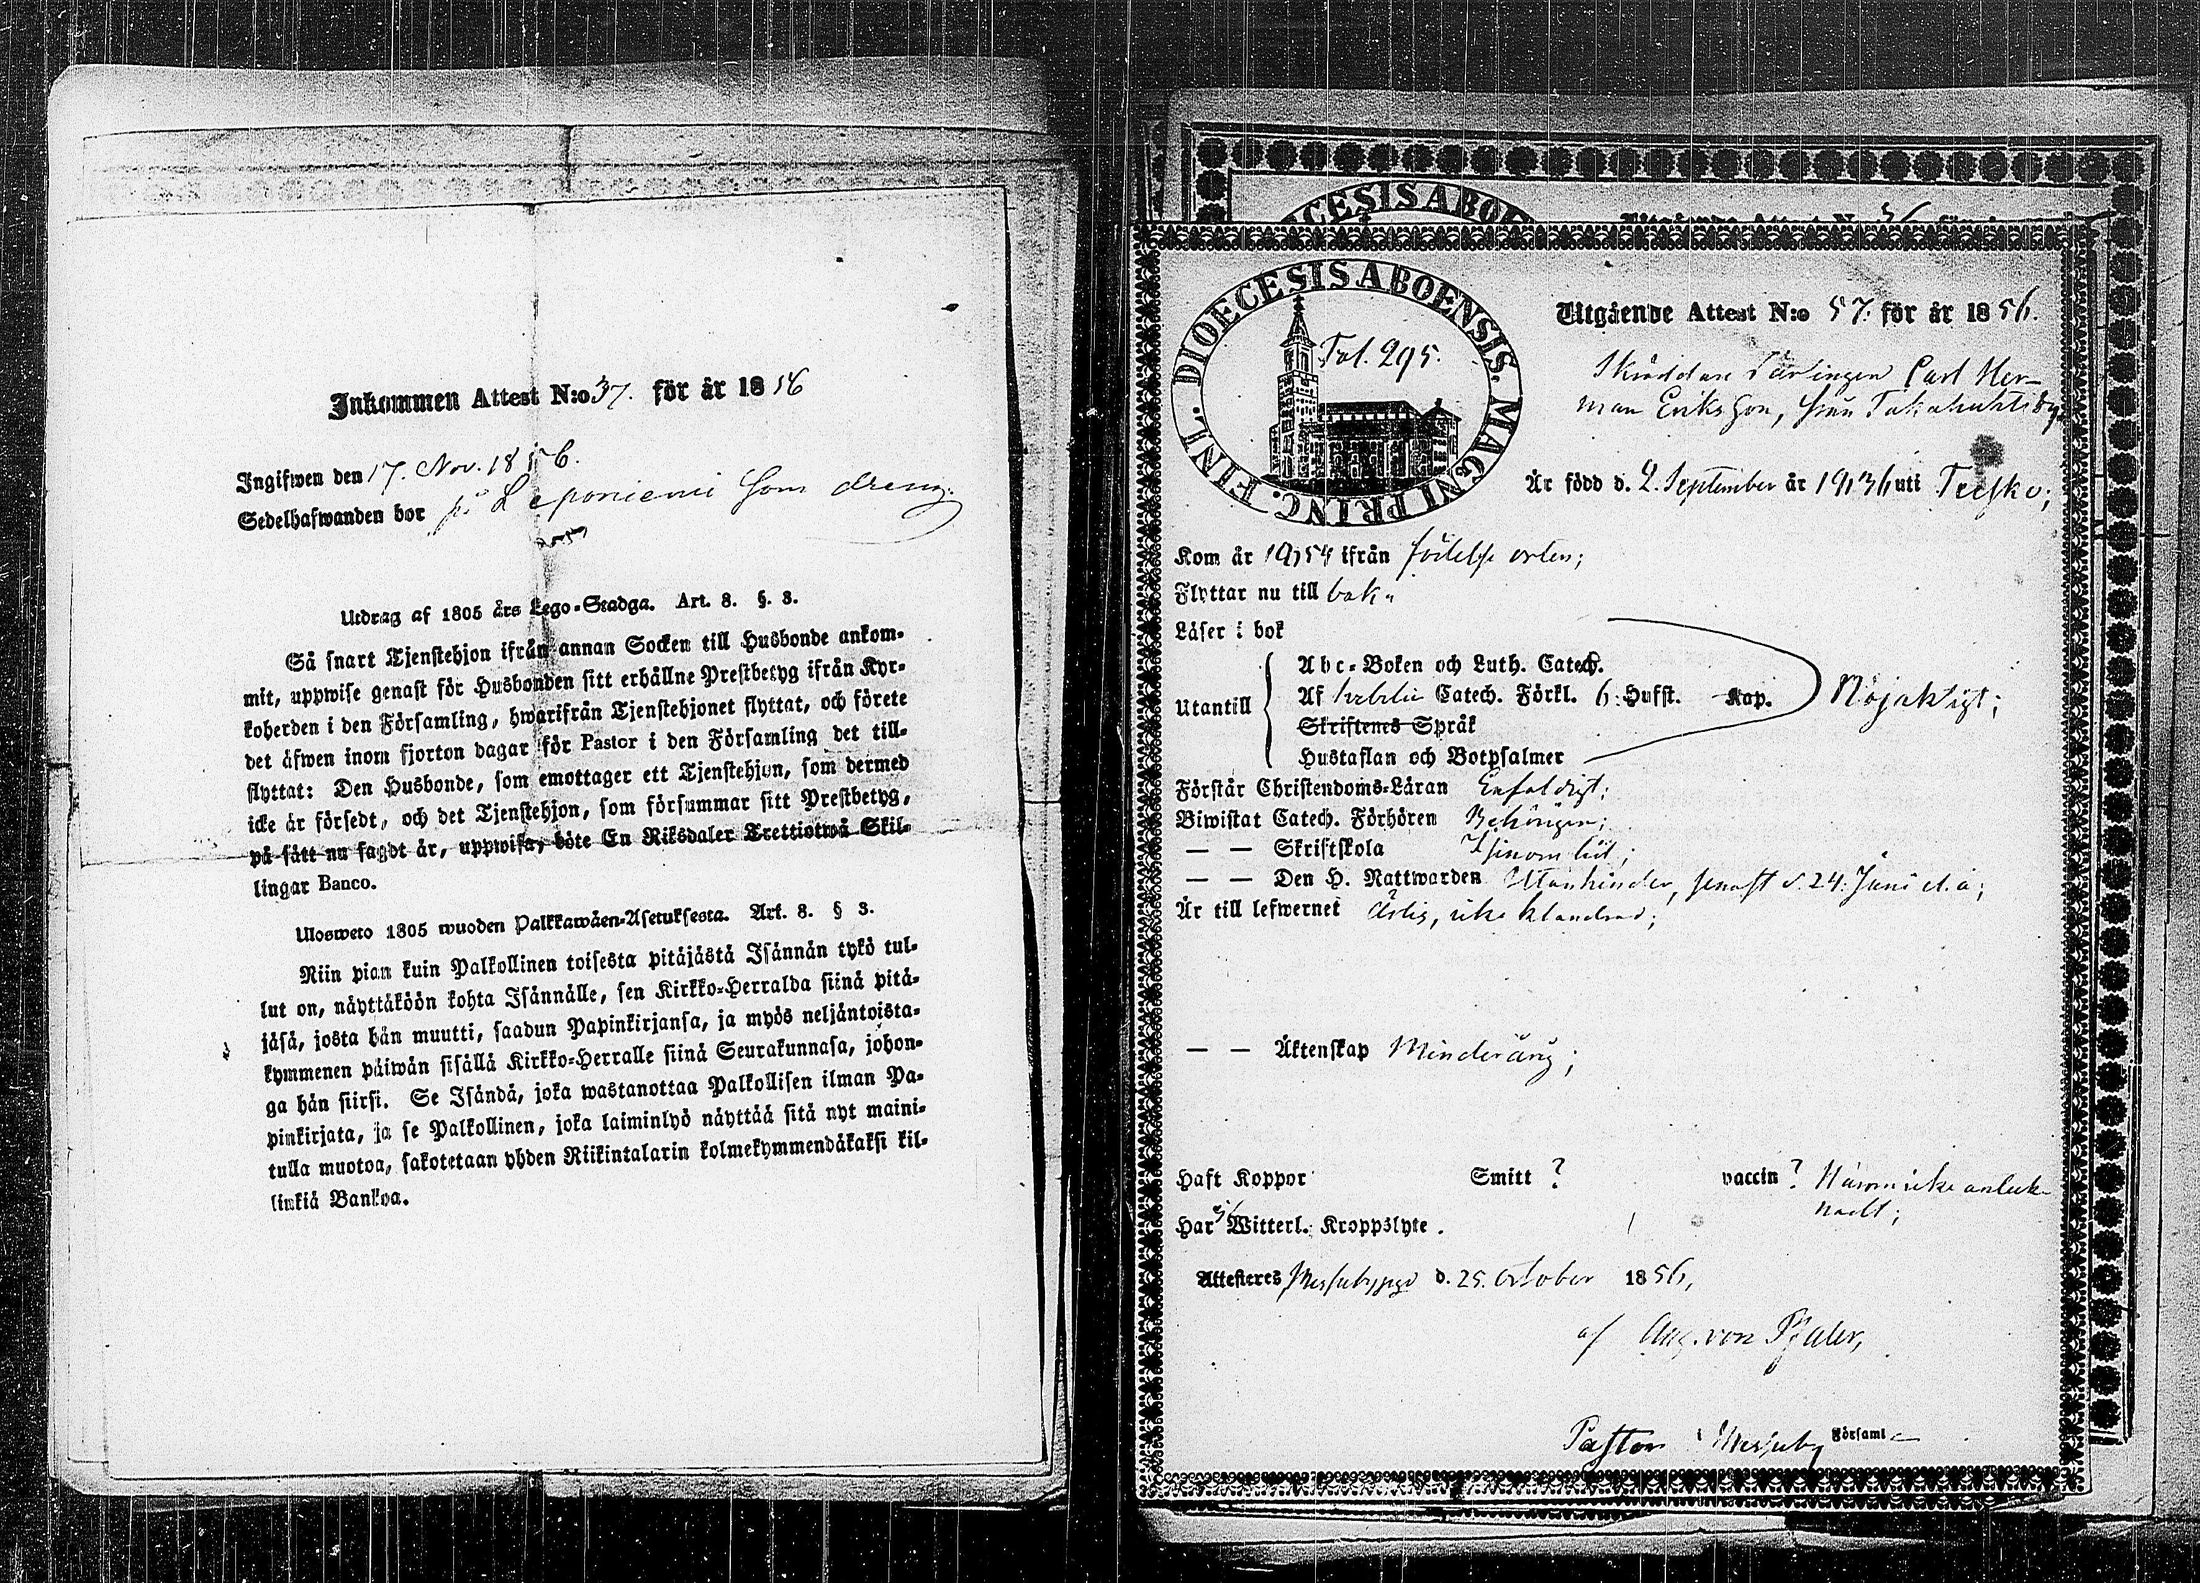 Inkommen Attest N:o 37. för år 1856
Ingifwen den 17. Nov. 1856.
Sedelhafwanden bor på Leponiemi som dreng.
Utdrag af 1805 års Lego-Stadga. Art. 8. §. 3.
Så snart Tjenstehjon ifrån annan Socken till Husbonde ankom-
mit, uppwise genast för Husbonden sitt erhållne Prestbetyg ifrån Kyr-
koherden i den Församling, hwarifrån Tjenstehjonet flyttat, och förete
det äfwen inom fjorton dagar för Pastor i den Församling det till-
flyttat: Den Husbonde, som emottager ett Tjenstehjon, som dermed
icke är försedt, och det Tjenstehjon, som försummar sitt Prestbetyg,
på sätt nu sagdt är, uppwisa, böte En Riksdaler Trettiotwå Skil-
lingar Banco.
Ulosweto 1805 wuoden Palkkawäen-Asetuksesta. Art. 8. § 3.
Niin pian kuin Palkollinen toisesta pitäjästä Isännän tykö tul-
lut on, näyttäköön kohta Isännälle, sen Kirkko-Herralda siinä pitä-
jäsä, josta hän muutti, saadun Papinkirjansa, ja myös neljäntoista-
kymmenen päiwän sisällä Kirkko-Herralle siinä Seurakunnasa, johon-
ga hän siirsi. Se Isändä, joka wastanottaa Palkollisen ilman Pa-
pinkirjata, ja se Palkollinen, joka laiminlyö näyttää sitä nyt maini-
tulla muotoa, sakotetaan yhden Riikintalarin kolmekymmendäkaksi kil-
linkiä Bankoa.
DIOECESIS ABOENSIS. MAGNI PRINC. FINL.
Fol. 295.
Utgående Attest N:o 57. för år 1856.
Skräddare Lärlingen Carl Her-
man Eriksson, från Takahuhti by
Är född d. 2. September år 1836 uti Teisko;
Kom år 1854 ifrån födelse orten;
Flyttar nu till bak.
Läser i bok
Abc-Boken och Luth. Catech.
Utantill Af Catech. Förkl. 6. Hufst. Kap. Nöjaktigt;
Skriftenes Språk
Hustaflan och Botpsalmer
Förstår Christendoms-Läran Enfaldigt;
Biwistat Catech. Förhören Behörigen;
— — Skriftskola
— — Den H. Nattwarden Utan hinder, senast d. 24. Juni d. å;
Är till lefwernet Ärlig, icke klandrad;
— — Äktenskap Minderårig;
Haft Koppor Smitt ? vaccin ? Härom icke anteck-
nadt;
Har Witterl. Kroppslyte.
Attesteres Messubyggd d. 25. October 1856,
af Aug. von Pfaler,
Pastor i Messuby Församl